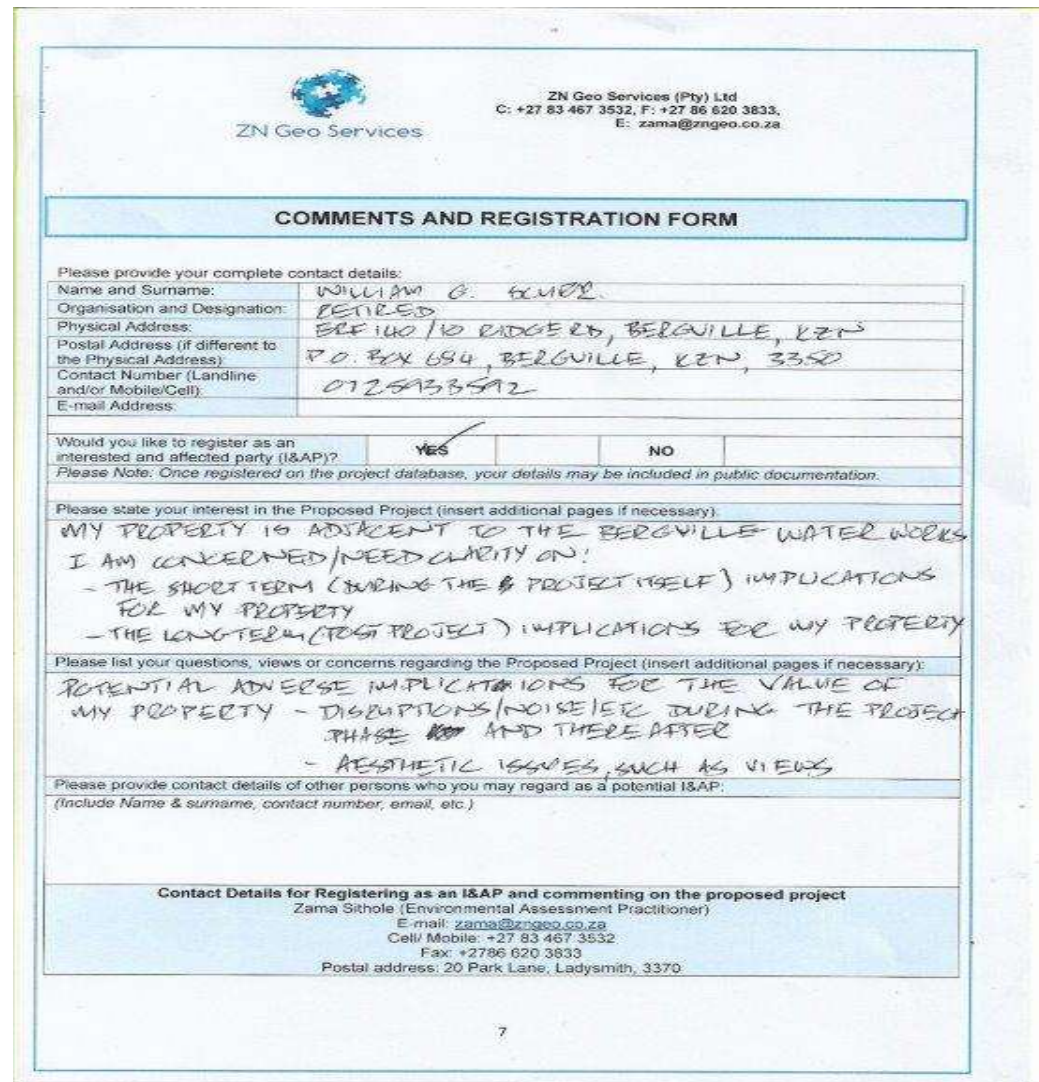 ZN Geo Services
ZN Geo Services (Pty) Ltd
C: +27 83 467 3532, F: +27 86 620 3833,
E: zama@zngeo.co.za
COMMENTS AND REGISTRATION FORM
Please provide your complete contact details:
Name and Surname: WILLIAM G.
Organisation and Designation: RETIRED
Physical Address: ERF 140/10 RIDGE RD, BERGVILLE, KZN
Postal Address (if different to
the Physical Address): P.O. BOX 684, BERGVILLE, KZN, 3350
Contact Number (Landline
and/or Mobile/Cell): 0725933592
E-mail Address:
Would you like to register as an
interested and affected party (I&AP)? YES NO
Please Note: Once registered on the project database, your details may be included in public documentation.
Please state your interest in the Proposed Project (insert additional pages if necessary):
MY PROPERTY IS ADJACENT TO THE BERGVILLE WATER WORKS
I AM CONCERNED/NEED CLARITY ON:
- THE SHORT TERM (DURING THE PROJECT ITSELF) IMPLICATIONS
FOR MY PROPERTY
- THE LONG TERM (POST PROJECT) IMPLICATIONS FOR MY PROPERTY
Please list your questions, views or concerns regarding the Proposed Project (insert additional pages if necessary):
POTENTIAL ADVERSE IMPLICATIONS FOR THE VALUE OF
MY PROPERTY - DISRUPTIONS/NOISE/ETC DURING THE PROJECT
PHASE AND THEREAFTER
- AESTHETIC ISSUES, SUCH AS VIEWS
Please provide contact details of other persons who you may regard as a potential I&AP:
(Include Name & surname, contact number, email, etc.)
Contact Details for Registering as an I&AP and commenting on the proposed project
Zama Sithole (Environmental Assessment Practitioner)
E-mail: zama@zngeo.co.za
Cell/ Mobile: +27 83 467 3532
Fax: +2786 620 3833
Postal address: 20 Park Lane, Ladysmith, 3370
7